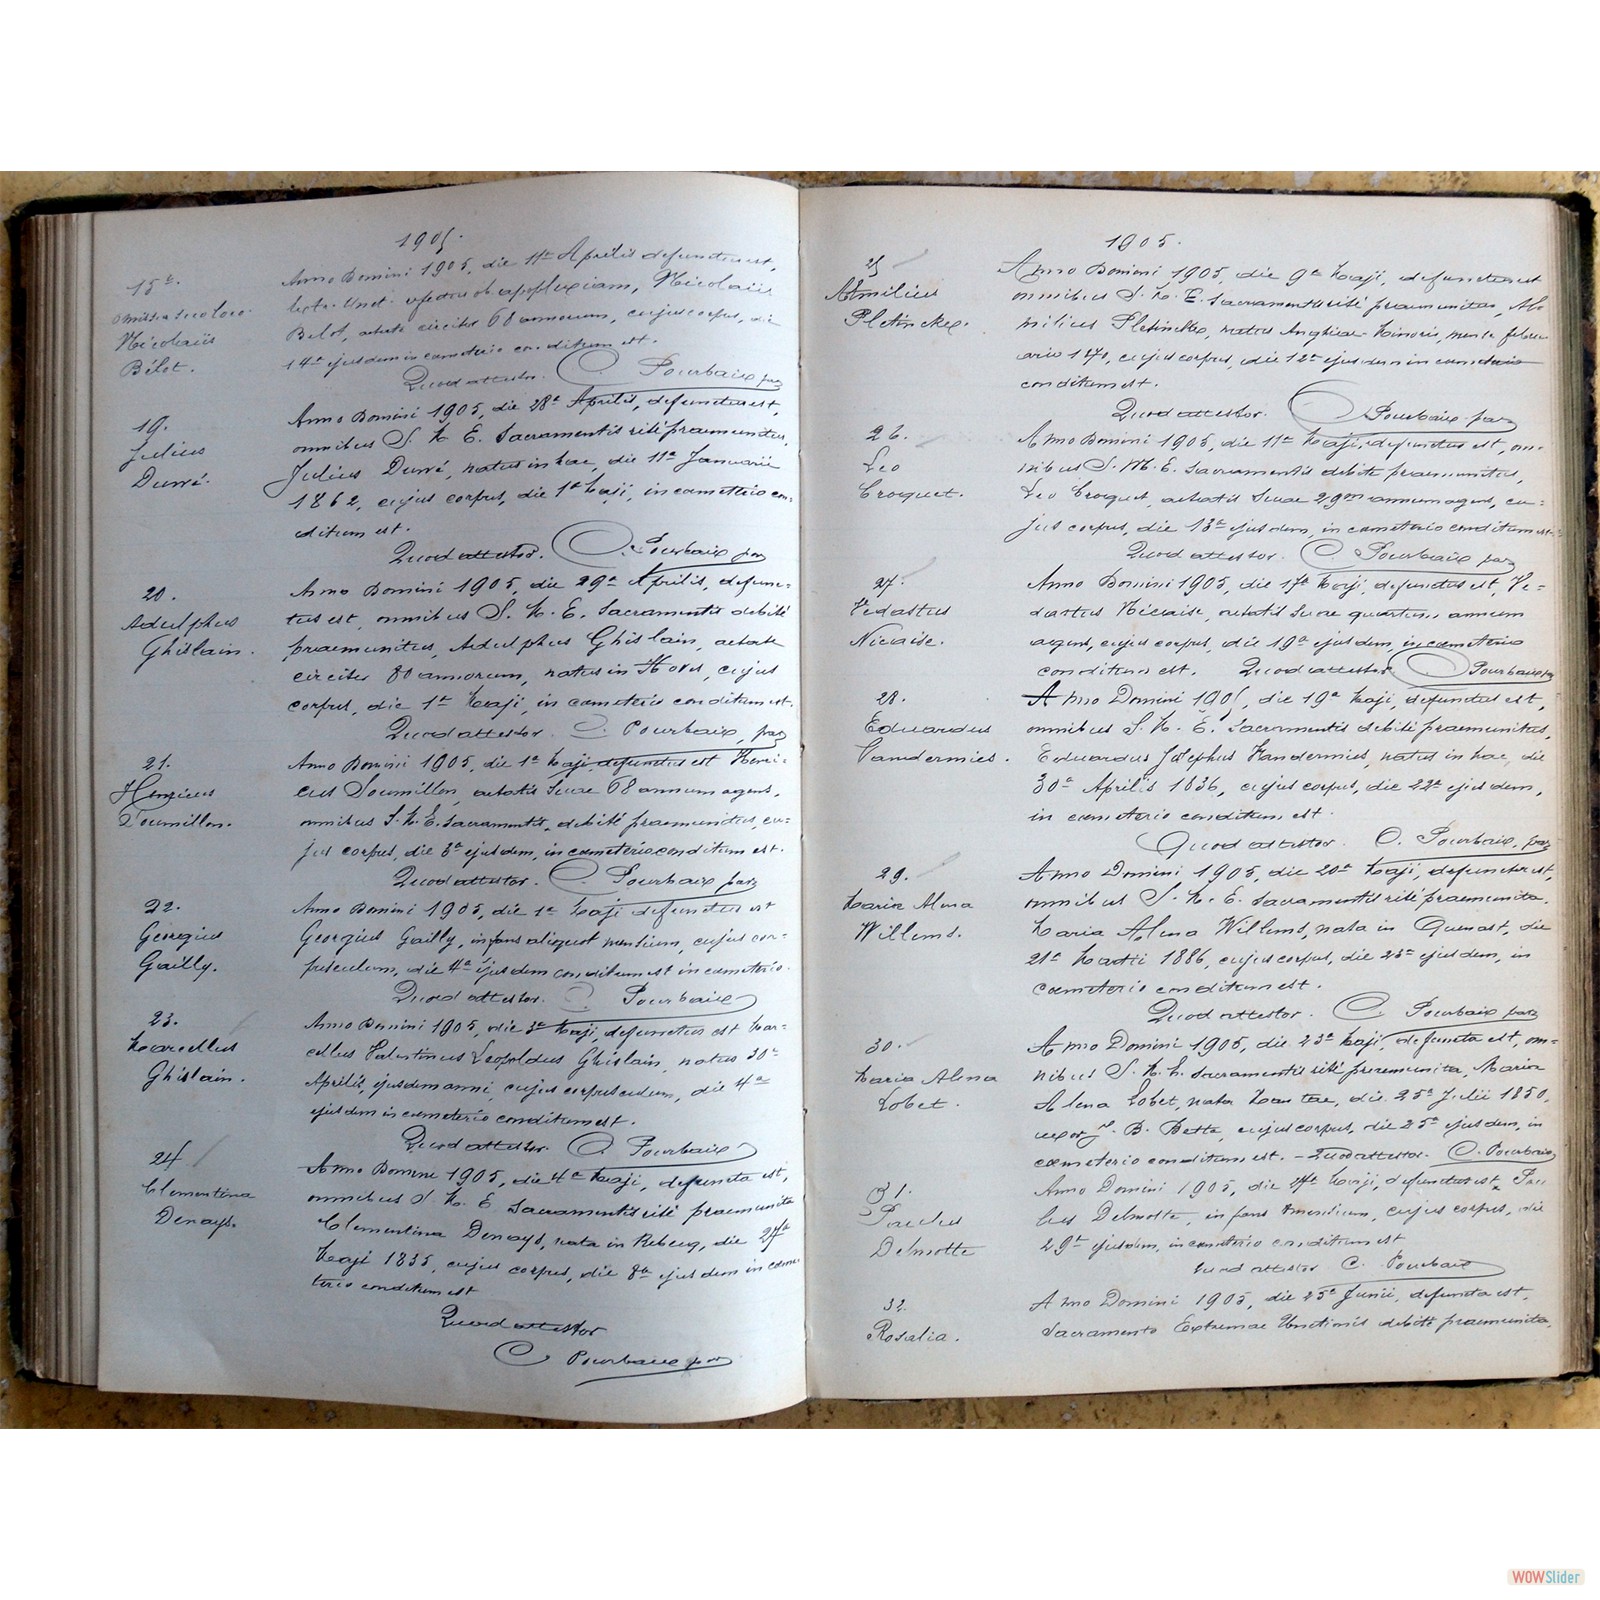 1905.
15b.
omissa suo loco.
Nicolaüs
Bélot.
Anno Domini 1905, die 11a Aprilis defunctus est,
Unct. ob apoplexiam, Nicolaüs
Belot, aetate circiter 68 annorum, cujus corpus, die
14a ejusdem in cameterio conditum est.
Quod attestor. C. Pourbaix par
19.
Julius
Durré.
Anno Domini 1905, die 28a Aprilis, defunctus est,
omnibus S. M. E. Sacramentis rité praemunitus,
Julius Durré, natus in hac, die 11a Januarii
1862, cujus corpus, die 1a Maji, in cameterio con-
ditum est.
Quod attestor. C. Pourbaix par
20.
Adulphus
Ghislain.
Anno Domini 1905, die 29a Aprilis, defunc-
tus est, omnibus S. M. E. Sacramentis debité
praemunitus, Adulphus Ghislain, aetate
circiter 80 annorum, natus in Hoves, cujus
corpus, die 1a Maji, in cameterio conditum est.
Quod attestor. C. Pourbaix, par
21.
Henricus
Doumillon.
Anno Domini 1905, die 1a Maji, defunctus est Henri-
cus Doumillon, aetatis suae 68 annum agens,
omnibus S. M. E. Sacramentis, debité praemunitus, cu-
jus corpus, die 3a ejusdem, in cameterio conditum est.
Quod attestor. C. Pourbaix par
22.
Georgius
Gailly.
Anno Domini 1905, die 1a Maji defunctus est
Georgius Gailly, infans aliquot mensium, cujus cor-
pusculum, die 4a ejusdem conditum est in cameterio.
Quod attestor. C. Pourbaix
23.
Marcellus
Ghislain.
Anno Domini 1905, die 3a Maji, defunctus est Mar-
cellus Valentinus Leopoldus Ghislain, natus 30a
Aprilis, ejusdem anni, cujus corpusculum, die 4a
ejusdem in cameterio conditum est.
Quod attestor. C. Pourbaix
24
Clementina
Denays.
Anno Domini 1905, die 4a Maji, defuncta est,
omnibus S. M. E Sacramentis rité praemunita
Clementina Denays, nata in Rebecq, die 27a
Maji 1835, cujus corpus, die 8a ejusdem in came-
terio conditum est
Quod attestor
C Pourbaix par
1905.
25
Aemilius
Pletinckx.
Anno Domini 1905, die 9a Maji, defunctus est
omnibus S. M. E. Sacramentis rité praemunitus, Ae-
milius Pletinckx, natus Anghiae Minoris, mense febru-
ario 1870, cujus corpus, die 12a ejusdem in cameterio
conditum est.
Quod attestor. C. Pourbaix par
26.
Leo
Crocquet.
Anno Domini 1905, die 11a Maji, defunctus est, om-
nibus S. M. E. Sacramentis debité praemunitus,
Leo Crocquet, aetatis suae 29um annum agens, cu-
jus corpus, die 13a ejusdem, in cameterio conditum est.
Quod attestor. C Pourbaix par
27.
Vedastus
Nicaise.
Anno Domini 1905, die 17a Maji, defunctus est, Ve-
dastus Nicaise, aetatis suae quartum annum
agens, cujus corpus, die 19a ejusdem, in cameterio
conditum est. Quod attestor C Pourbaix par
28.
Eduardus
Vandermies.
Anno Domini 1905, die 19a Maji, defunctus est,
omnibus S. M. E. Sacramentis debité praemunitus,
Eduardus Josephus Vandermies, natus in hac, die
30a Aprilis 1836, cujus corpus, die 22a ejusdem,
in cameterio conditum est.
Quod attestor. C. Pourbaix, par
29.
Maria Alena
Willems.
Anno Domini 1905, die 20a Maji, defuncta est,
omnibus S. M. E. Sacramentis rité praemunita,
Maria Alena Willems, nata in Quenast, die
21a Martii 1886, cujus corpus, die 23a ejusdem, in
cameterio conditum est.
Quod attestor. C. Pourbaix par
30.
Maria Alena
Lobet.
Anno Domini 1905, die 23a Maji, defuncta est, om-
nibus S. M. E. Sacramentis rité praemunita, Maria
Alena Lobet, nata die 25a Julii 1850,
uxor J. B. Bette, cujus corpus, die 25a ejusdem, in
cameterio conditum est. - Quod attestor. C. Pourbaix
31.
Paulus
Delmotte
Anno Domini 1905, die Maji, defunctus est, Pau-
lus Delmotte, infans mensium, cujus corpus, die
29a ejusdem, in cameterio conditum est
Quod attestor C. Pourbaix
32.
Rosalia.
Anno Domini 1905, die 25a Junii, defuncta est,
Sacramento Extremae Unctionis debité praemunita,
WOWSlider